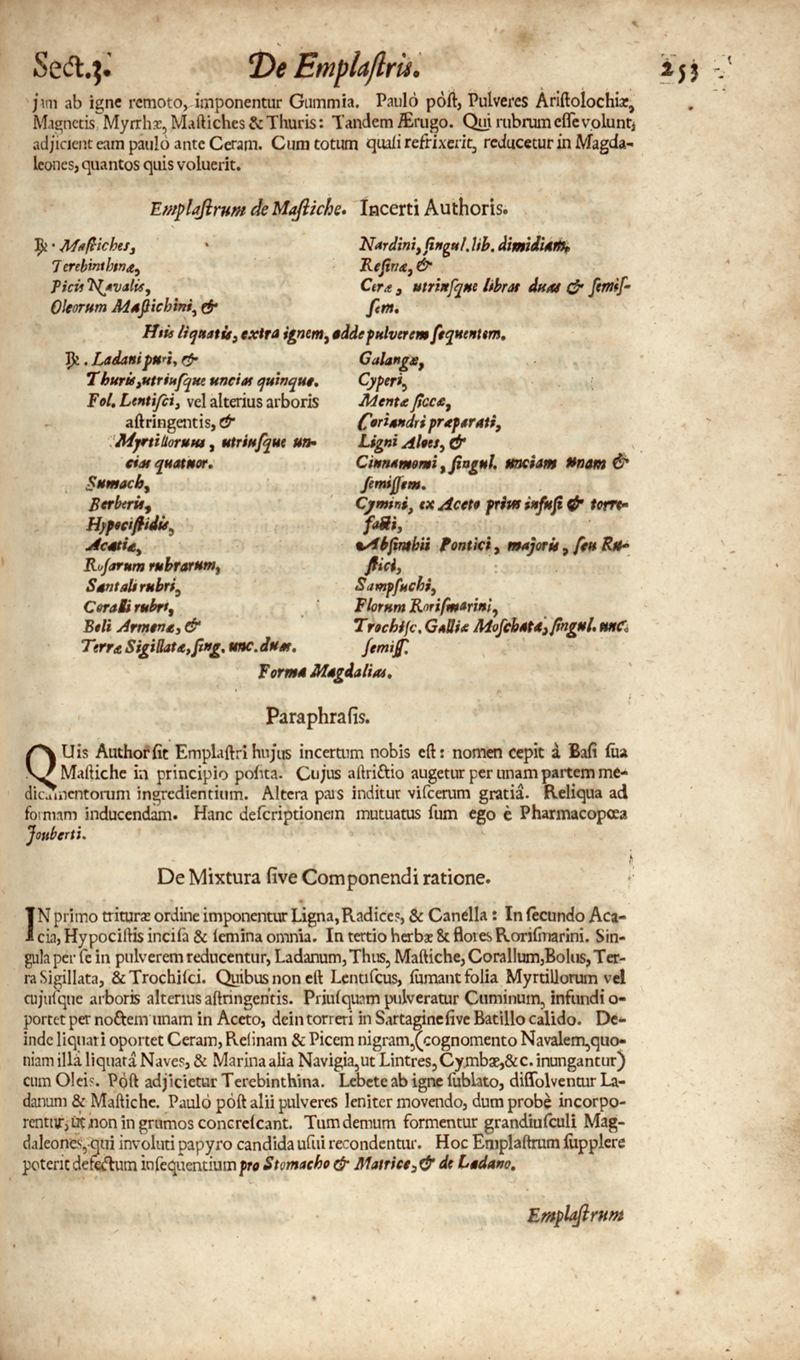 Sect.3. De Emplaſtris. 253
jam ab igne remoto, imponentur Gummia. Paulò pòſt, Pulveres Ariſtolochiæ,
Magnetis, Myrrhæ, Maſtiches & Thuris: Tandem Ærugo. Qui rubrum eſſe volunt,
adjicient eam paulò ante Ceram. Cum totum quaſi refrixerit, reducetur in Magda-
leones, quantos quis voluerit.
Emplaſtrum de Maſtiche. Incerti Authoris.
℞. Maſtiches,
Terebinthinæ,
Picis Navalis,
Oleorum Maſtichini, &
Nardini, ſingul. lib. dimidiam,
Reſinæ, &
Ceræ, utrinſque libras duas & ſemiſ-
ſem.
Hiis liquatis, extra ignem, adde pulverem ſequentem.
℞. Ladani puri, &
Thuris, utriuſque uncias quinque.
Fol. Lentiſci, vel alterius arboris
aſtringentis, &
Myrtillorum, utriuſque un-
cias quatuor.
Sumach,
Berberis,
Hypociſtidis,
Acatiæ,
Roſarum rubrarum,
Santali rubri,
Coralli rubri,
Boli Armenæ, &
Terræ Sigillatæ, ſing. unc. duas.
Galangæ,
Cyperi,
Mentæ ſiccæ,
Coriandri præparati,
Ligni Aloes, &
Cinnamomi, ſingul. unciam unam &
ſemiſſem.
Cymini, ex Aceto prius infuſi & torre-
facti,
Abſinthii Pontici, majoris, ſeu Ru-
ſtici,
Sampſuchi,
Florum Roriſmarini,
Trochiſc. Galliæ Moſchatæ, ſingul. unc.
ſemiſſ.
Forma Magdalias.
Paraphraſis.
QUis Author ſit Emplaſtri hujus incertum nobis eſt: nomen cepit à Baſi ſua
Maſtiche in principio poſita. Cujus aſtrictio augetur per unam partem me-
dicamentorum ingredientium. Altera pars inditur viſcerum gratiâ. Reliqua ad
formam inducendam. Hanc deſcriptionem mutuatus ſum ego è Pharmacopœa
Jouberti.
De Mixtura ſive Componendi ratione.
IN primo trituræ ordine imponentur Ligna, Radices, & Canella: In ſecundo Aca-
cia, Hypociſtis inciſa & ſemina omnia. In tertio herbæ & flores Roriſmarini. Sin-
gula per ſe in pulverem reducentur, Ladanum, Thus, Maſtiche, Corallum, Bolus, Ter-
ra Sigillata, & Trochiſci. Quibus non eſt Lentiſcus, ſumant folia Myrtillorum vel
cujuſque arboris alterius aſtringentis. Priuſquam pulveratur Cuminum, infundi o-
portet per noctem unam in Aceto, dein torreri in Sartagine ſive Batillo calido. De-
inde liquari oportet Ceram, Reſinam & Picem nigram, (cognomento Navalem, quo-
niam illâ liquatâ Naves, & Marina alia Navigia, ut Lintres, Cymbæ, &c. inungantur)
cum Oleis. Pòſt adjicietur Terebinthina. Lebete ab igne ſublato, diſſolventur La-
danum & Maſtiche. Paulò pòſt alii pulveres leniter movendo, dum probè incorpo-
rentur, ut non in grumos concreſcant. Tum demum formentur grandiuſculi Mag-
daleones, qui involuti papyro candida uſui recondentur. Hoc Emplaſtrum ſupplere
poterit defectum inſequentium pro Stomacho & Matrice, & de Ladano.
Emplaſtrum